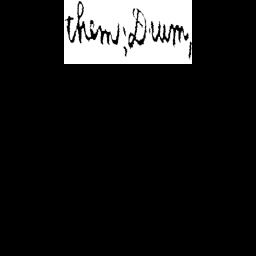 them; Drum,